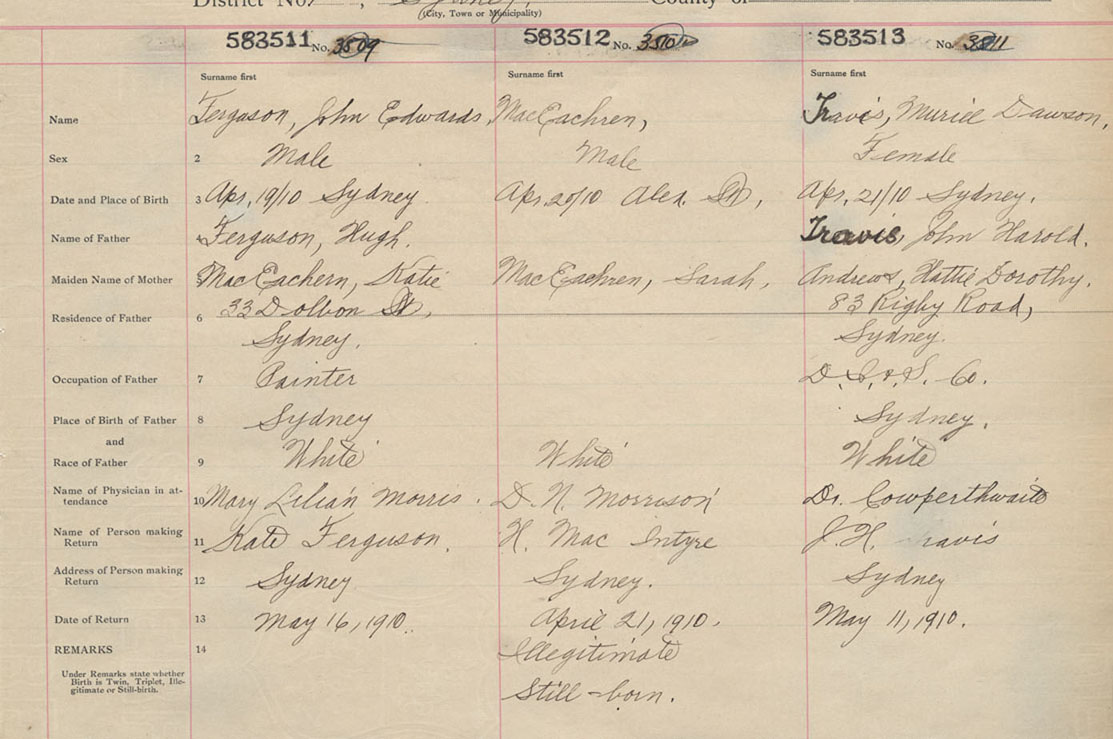 District No. , Sydney, County of
(City, Town or Municipality)
583511 No. 3509 583512 No. 3510 583513 No. 3511
Surname first Surname first Surname first
Name Ferguson, John Edwards, MacEachren, Travis, Muriel Dawson,
Sex 2 Male Male Female
Date and Place of Birth 3 Apr. 19/10 Sydney Apr. 20/10 Alex. St, Apr. 21/10 Sydney.
Name of Father 4 Ferguson, Hugh. Travis, John Harold.
Maiden Name of Mother 5 MacEachern, Katie MacEachren, Sarah, Andrews, Hattie Dorothy.
Residence of Father 6 33 Dolbon St, 83 Rigby Road,
Sydney. Sydney.
Occupation of Father 7 Painter D. I. & S. Co.
Place of Birth of Father 8 Sydney Sydney.
and
Race of Father 9 White White White
Name of Physician in at-
tendance 10 Mary Lilian Morris. D. N. Morrison Dr. Cowperthwaite
Name of Person making
Return 11 Kate Ferguson. H. Mac Intyre J. H. Travis
Address of Person making
Return 12 Sydney Sydney. Sydney
Date of Return 13 May 16, 1910. April 21, 1910. May 11, 1910.
REMARKS 14 Illegitimate
Under Remarks state whether
Birth is Twin, Triplet, Ille-
gitimate or Still-birth. Still-born.